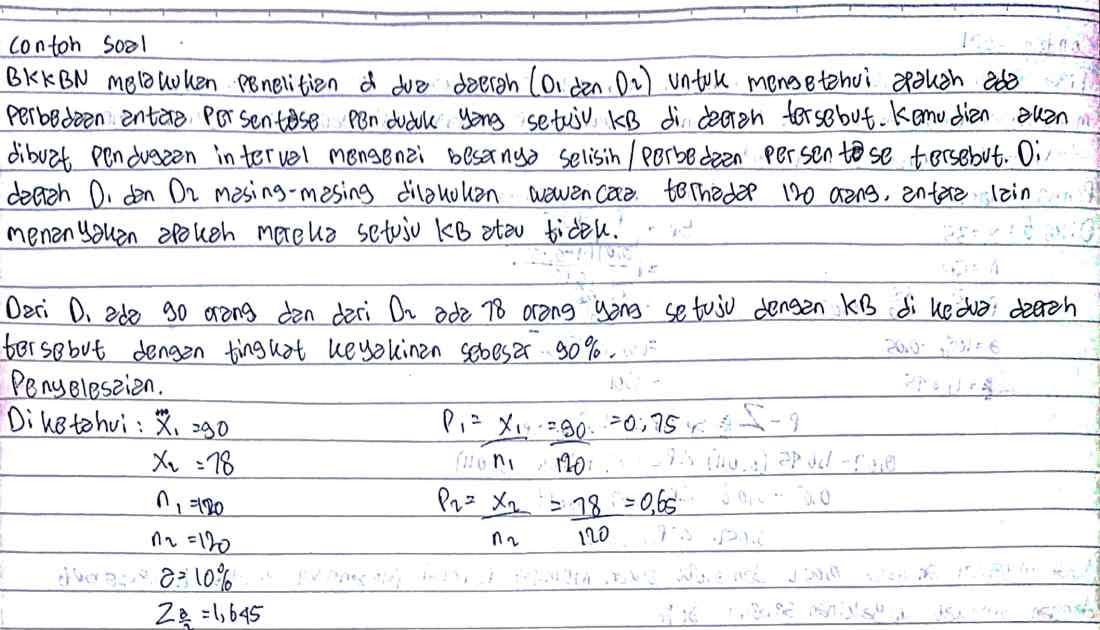 Contoh Soal
BKKBN melakukan penelitian di dua daerah (D1 dan D2) untuk mengetahui apakah ada
perbedaan antara persentase penduduk yang setuju KB di daerah tersebut. Kemudian akan
dibuat pendugaan interval mengenai besarnya selisih/perbedaan persentase tersebut. Di
daerah D1 dan D2 masing-masing dilakukan wawancara terhadap 120 orang, antara lain
menanyakan apakah mereka setuju KB atau tidak.
Dari D1 ada 90 orang dan dari D2 ada 78 orang yang setuju dengan KB di kedua daerah
tersebut dengan tingkat keyakinan sebesar 90%.
Penyelesaian.
Diketahui : X1 = 90 P1 = X1/n1 = 90/120 = 0,75
X2 = 78
n1 = 120 P2 = X2/n2 = 78/120 = 0,65
n2 = 120
a = 10%
Z a/2 = 1,645